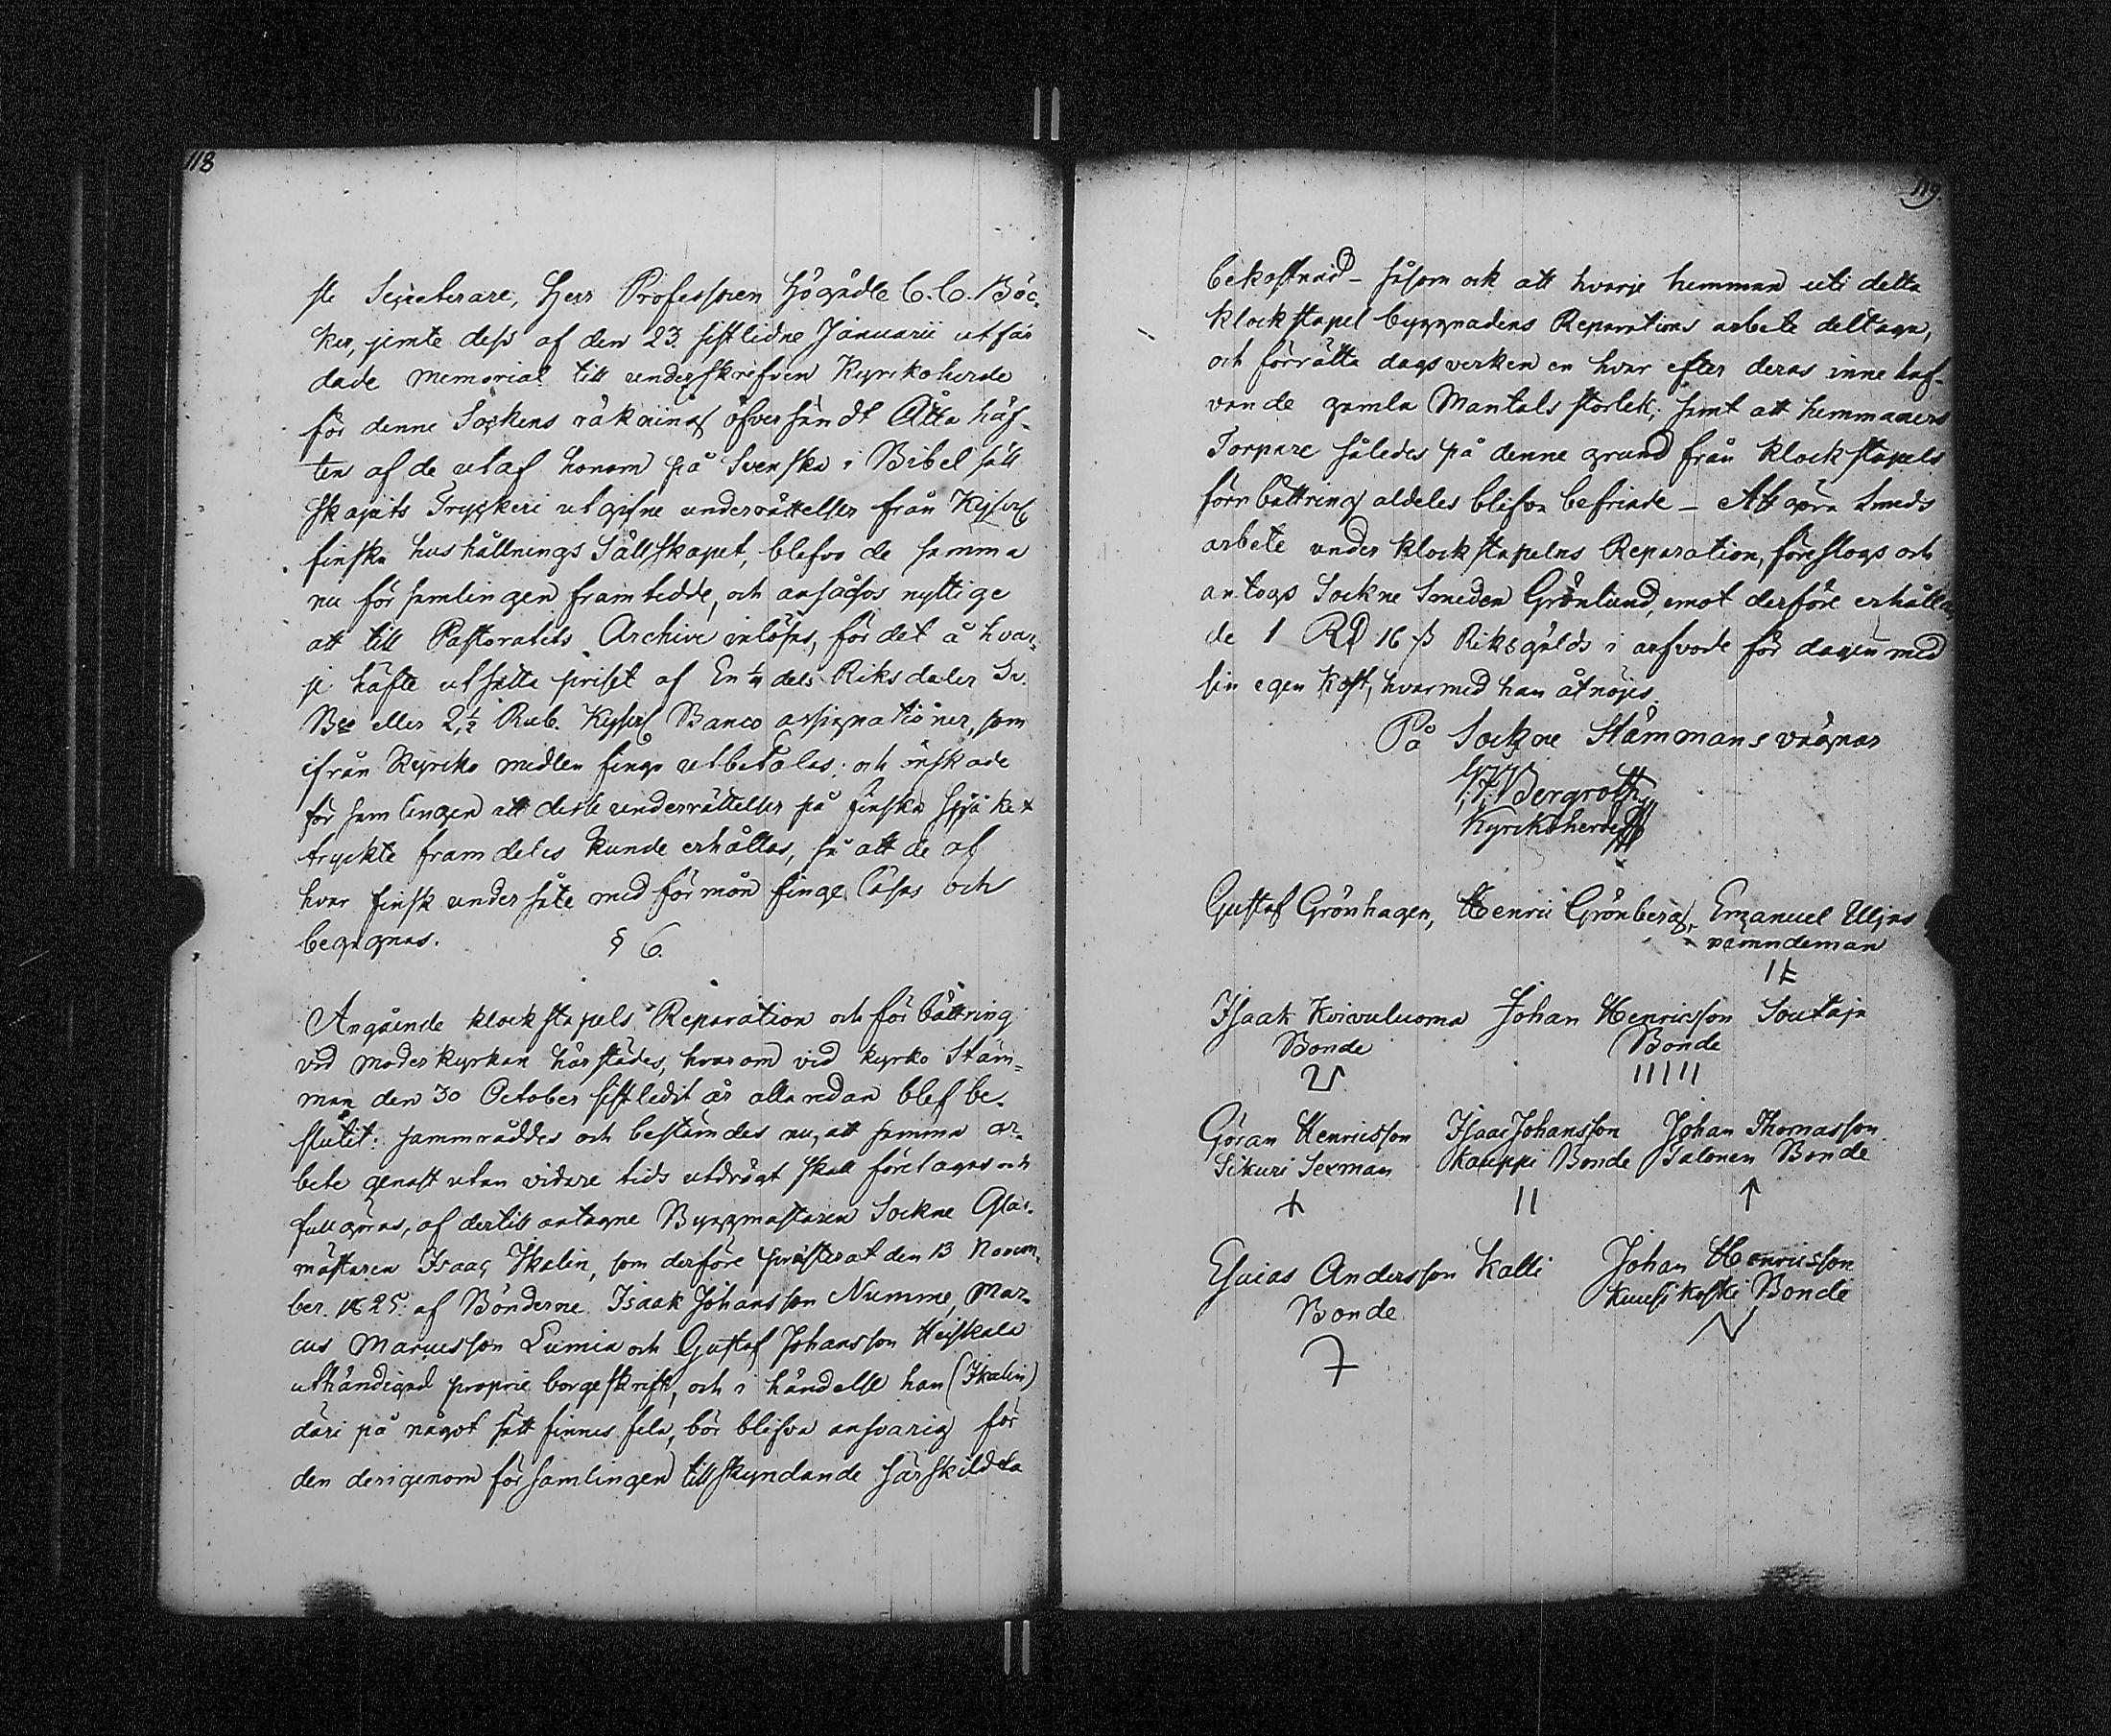 118
ste Secreterare, Herr Professoren Högädle C. C. Böc-
ker, jemte dess af den 23. sistlidne Januarii utfär
dade Memorial till underskrefven Kyrkoherde
för denne Sockens räkning öfversändt Åtta häf-
ten af de utaf honom på Svenska i Bibel säll
skapets Tryckeri utgifne underrättelser från Kejserl.
finska hushållnings Sällskapet, blefvo de samma
nu församlingen framtedde, och ansågos nyttige
att till Pastoratets Archive inlösas, för det å hvar-
je häfte utsatta priset af En ¼ dels Riksdaler Sv.
Bco eller 2,½ Rub. Kejserl Banco assignationer, som
ifrån Kyrko medlen finge utbetalas; och önskade
församlingen att desse underrättelser på finska språket
tryckte framdeles kunde erhållas, så att de af
hvar finsk undersåte med förmån finge läsas och
begagnas.
§ 6.
Angående klockstapels Reparation och förbättring
vid moderkyrkan härstädes, hvarom vid kyrko Stäm-
man den 30 October sistledit år allaredan blef be-
slutit: samråddes och bestämdes nu, att samma ar-
bete genast utan vidare tids utdrägt skall företagas och
fullgöras, af dertill antagne Byggmästaren Sockne Glas-
mästaren Isaac Ikalin, som derföre presterat den 13 Novem-
ber 1825. af Bönderne Isaak Johansson Numme, Mar-
cus Marcusson Lumia och Gustaf Johansson Heiskala
uthändigad proprie borgeskrift, och i händelse han (Ikalin)
däri på något sätt finnes fela, bör blifva ansvarig för
den derigenom församlingen tillskyndande särskildta
119.
bekostnad - såsom ock att hvarje hemman uti detta
klockstapel byggnadens Reparations arbete deltaga,
och förrätta dagsverken en hvar efter deras innehaf-
vande gamla Mantals storlek; samt att hemmanens
Torpare således på denne grund från klockstapels
förrbättring aldeles blifva befriade - Att göra smeds
arbete under klockstapelns Reparation, föreslogs och
antogs Sockne Smeden Grönlund, emot derföre erhållan
de 1 RD 16 s Riksgälds i arfvode för dagen med
sin egen Kost, hvarmed han åtnöjes.
På Sockne Stämmans vägnar
Bergroth
Kyrkoherde
Gustaf Grönhagen, Henric Grönberg, Emanuel Uljas
nämndeman
Isaak Koivuluoma Johan Henricsson Soutaja
Bonde Bonde
Göran Henricsson Isaac Johansson Johan Thomasson
Sikuri Sexman Kauppi Bonde Salonen Bonde
Esaias Andersson Kalli Johan Henricsson
Bonde Kuusikoski Bonde